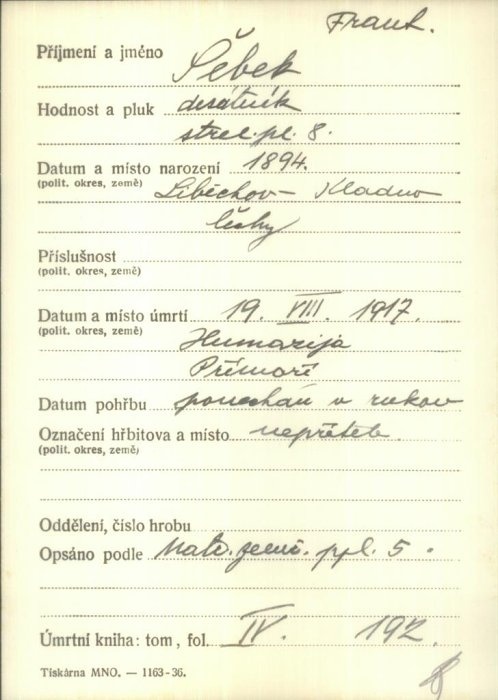 Frant.
Příjmení a jméno Šebek
Hodnost a pluk desátník
střel. pl. 8.
Datum a místo narození 1894.
(polit. okres, země) Liběchov - Kladno
Čechy
Příslušnost
(polit. okres, země)
Datum a místo úmrtí 19. VIII. 1917.
(polit. okres, země) Humarija
Přímoří
Datum pohřbu ponechán v rukou
Označení hřbitova a místo nepřítele
(polit. okres, země)
Oddělení, číslo hrobu
Opsáno podle Matr. zemř. ppl. 5.
Úmrtní kniha: tom, fol. IV. 192
Tiskárna MNO. — 1163-36.